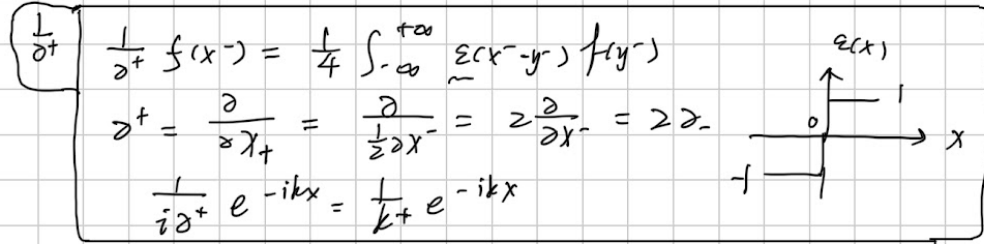 1/∂⁺
1/∂⁺ f(x⁻) = 1/4 ∫₋∞^{+∞} ε(x⁻-y⁻) f(y⁻)
∂⁺ = ∂/∂x₊ = ∂/(½∂x⁻) = 2 ∂/∂x⁻ = 2∂₋
1/(i∂⁺) e^{-ikx} = 1/k⁺ e^{-ikx}
ε(x)
1
0
x
-1